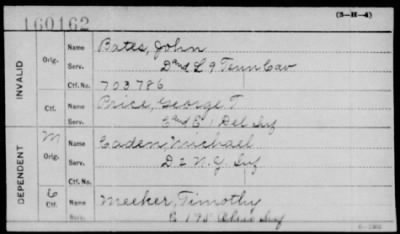 160162 (3-H-4)
INVALID
Orig. Name Bates, John
Serv. D and L 9 Tenn Cav
Ctf. No. 703786
Ctf. Name Price, George T.
Serv. Del Inf
DEPENDENT
M Orig. Name Eaden, Michael
Serv. D 2 N.Y. Inf
Ctf. No.
C Ctf. Name Meeker, Timothy
B 175 Ohio Inf